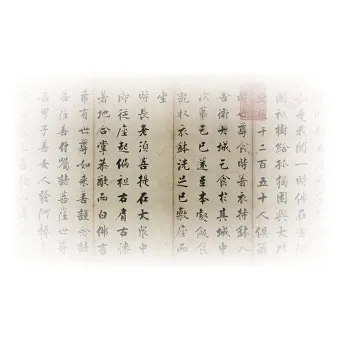 是我聞一時佛在
國祇樹給孤獨園與大比
千二百五十人俱爾
時世尊食時著衣持鉢入
舍衛大城乞食於其城中
次第乞已還至本處飯食
訖收衣鉢洗足已敷座而
坐
時長老須菩提在大衆中
即從座起偏袒右肩右膝
著地合掌恭敬而白佛言
希有世尊如來善護念諸
菩薩善付囑諸菩薩世尊
善男子善女人發阿耨多